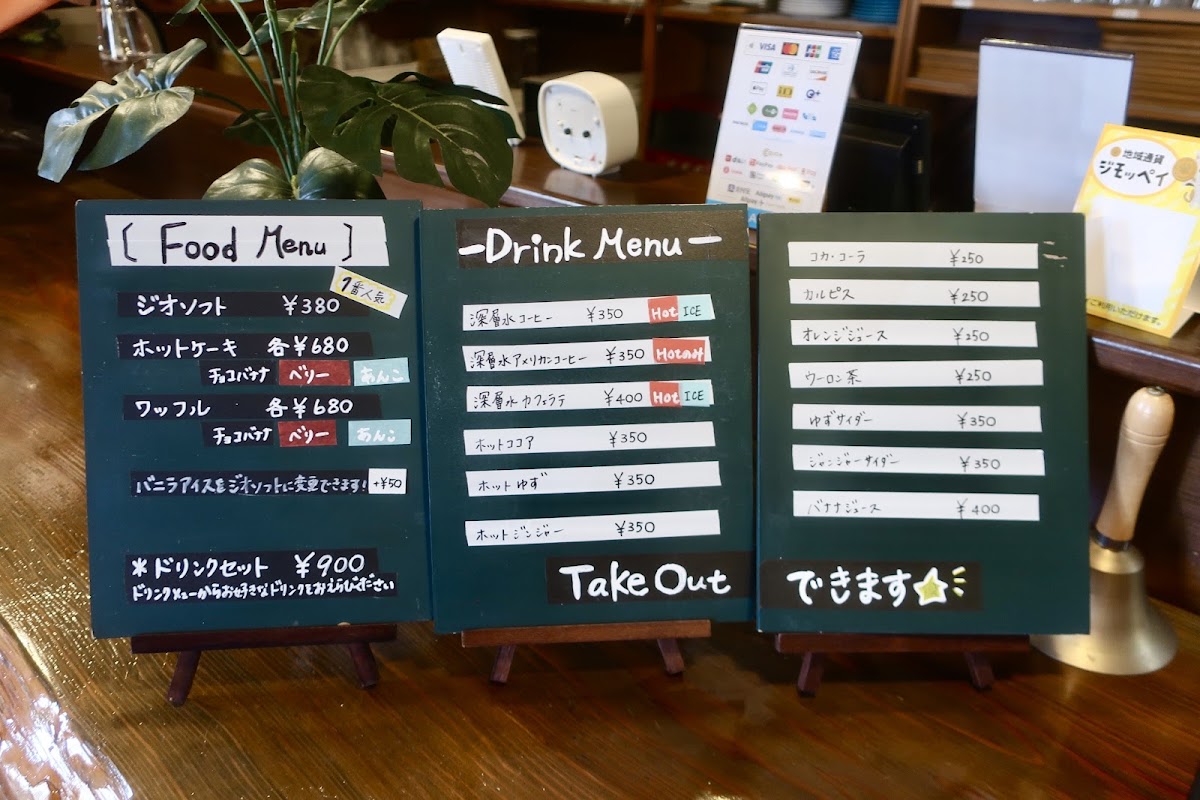 [ Food Menu ]
1番人気
ジオソフト ¥380
ホットケーキ 各¥680
チョコバナナ ベリー あんこ
ワッフル 各¥680
チョコバナナ ベリー あんこ
バニラアイスをジオソフトに変更できます! +¥50
*ドリンクセット ¥900
ドリンクメニューからお好きなドリンクをおえらびください
-Drink Menu-
深層水コーヒー ¥350 Hot ICE
深層水アメリカンコーヒー ¥350 Hotのみ
深層水カフェラテ ¥400 Hot ICE
ホットココア ¥350
ホットゆず ¥350
ホットジンジャー ¥350
Take Out
コカ・コーラ ¥250
カルピス ¥250
オレンジジュース ¥250
ウーロン茶 ¥250
ゆずサイダー ¥350
ジンジャーサイダー ¥350
バナナジュース ¥400
できます☆
VISA
地域通貨
ジモッペイ
ご利用いただけます。